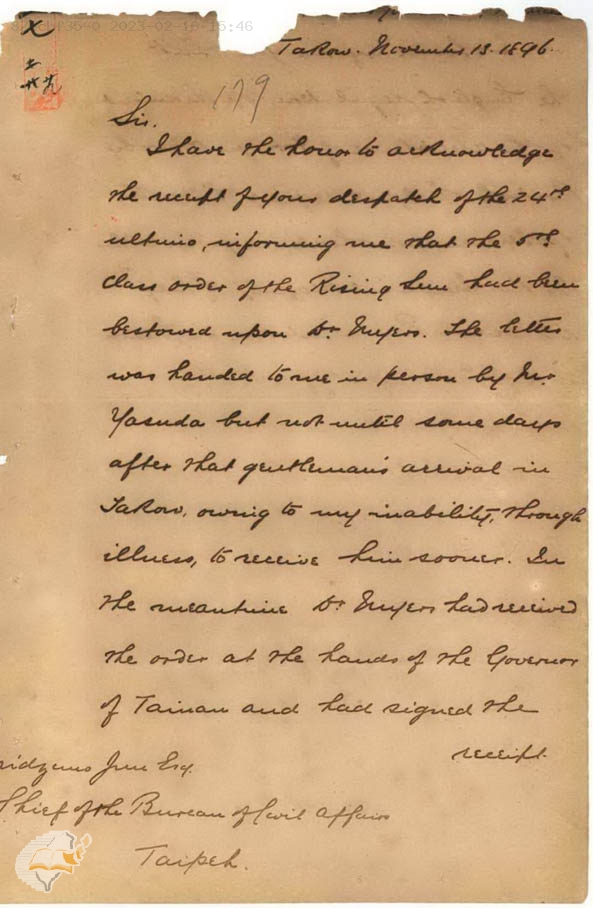 2023-02-10 15:46
Takow. November 13. 1896.
179
Sir.
I have the honor to acknowledge
the receipt of your despatch of the 24th
ultimo, informing me that the 5th
Class order of the Rising Sun had been
bestowed upon Dr Myers. The letter
was handed to me in person by Mr
Yasuda but not until some days
after that gentleman's arrival in
Takow, owing to my inability, through
illness, to receive him sooner. In
the meantime Dr Myers had received
the order at the hands of the Governor
of Tainan and had signed the
receipt.
Jun Esq.
Chief of the Bureau of Civil Affairs
Taipeh.